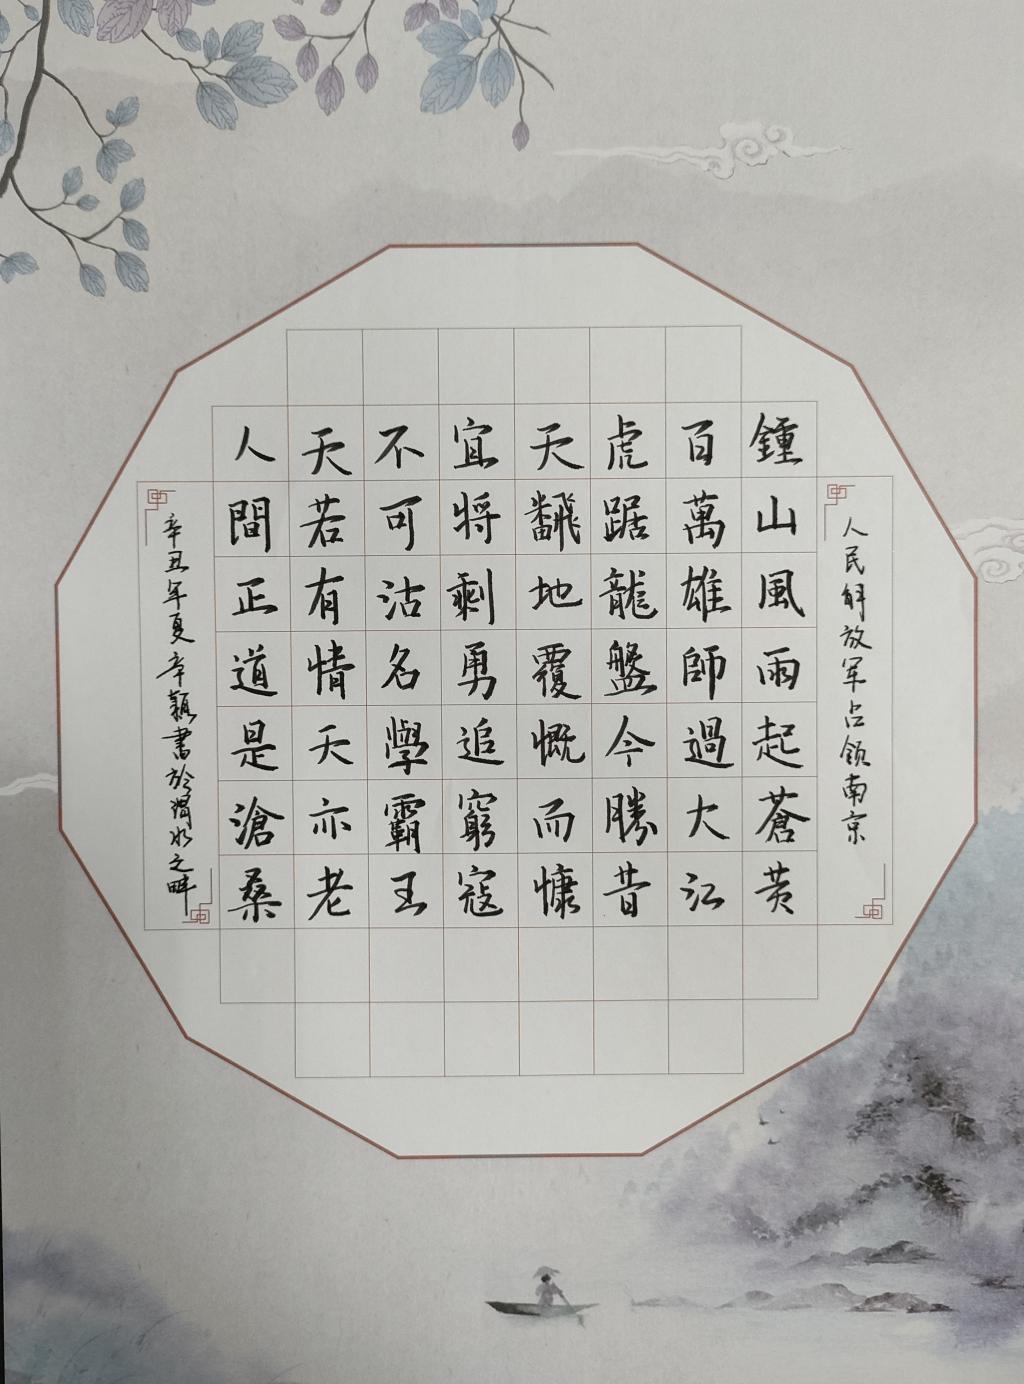 人民解放军占领南京
鍾山風雨起蒼黄
百萬雄師過大江
虎踞龍盤今勝昔
天飜地覆慨而慷
宜将剩勇追窮寇
不可沽名學霸王
天若有情天亦老
人間正道是滄桑
辛丑年夏辛穎書於渭水之畔